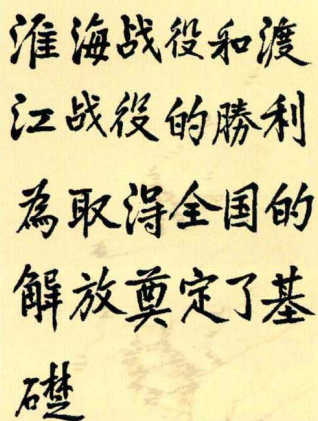 淮海战役和渡
江战役的勝利
為取得全国的
解放奠定了基
礎